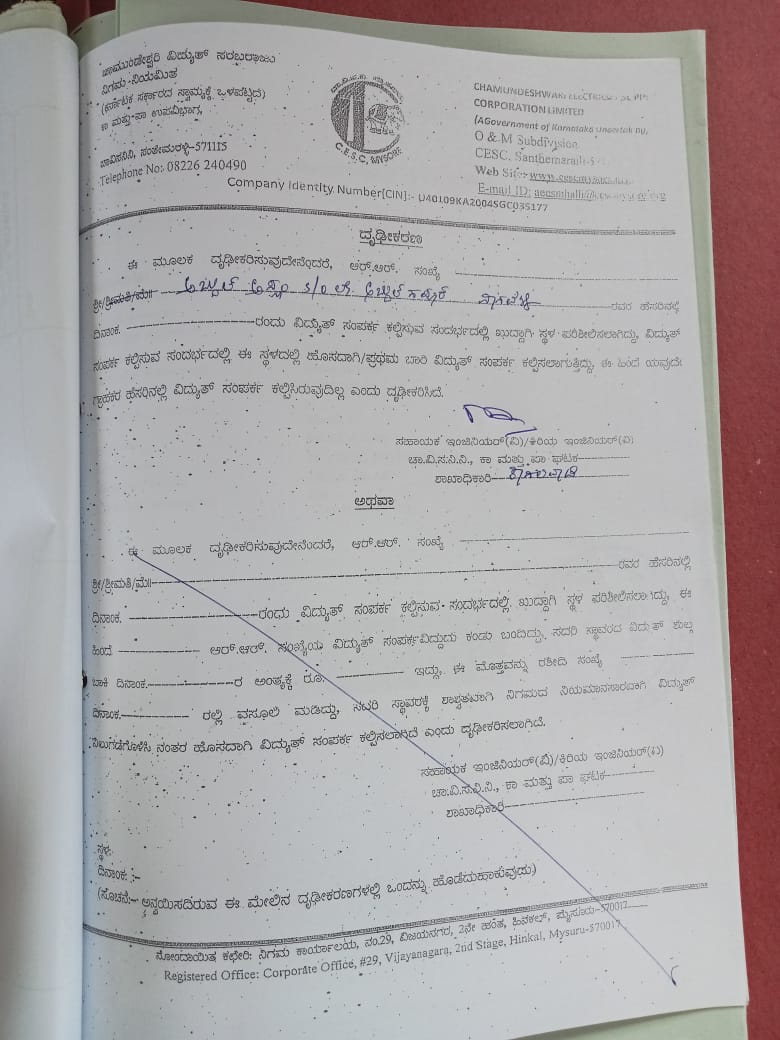 ಚಾಮುಂಡೇಶ್ವರಿ ವಿದ್ಯುತ್ ಸರಬರಾಜು
ನಿಗಮ ನಿಯಮಿತ
(ಕರ್ನಾಟಕ ಸರ್ಕಾರದ ಸ್ವಾಮ್ಯಕ್ಕೆ ಒಳಪಟ್ಟಿದೆ)
ಕಾ ಮತ್ತು ಪಾ ಉಪವಿಭಾಗ,
ಚಾವಿಸನಿನಿ, ಸಂತೇಮರಳ್ಳಿ-571115
Telephone No: 08226 240490
C.E.S.C, MYSORE
CHAMUNDESHWARI
CORPORATION LIMITED
(AGovernment of Karnataka
O & M Subdivision
CESC, Santhemaralli
Web Site:
E-mail ID:
Company Identity Number[CIN]:- U40109KA2004SGC035177
ದೃಢೀಕರಣ
ಈ ಮೂಲಕ ದೃಢೀಕರಿಸುವುದೇನೆಂದರೆ, ಆರ್.ಆರ್. ಸಂಖ್ಯೆ
ಶ್ರೀ/ಶ್ರೀಮತಿ/ಮೆ|| ಅಬ್ದುಲ್ S/o ಲೇ. ಅಬ್ದುಲ್ ರವರ ಹೆಸರಿನಲ್ಲಿ
ದಿನಾಂಕ. ರಂದು ವಿದ್ಯುತ್ ಸಂಪರ್ಕ ಕಲ್ಪಿಸುವ ಸಂದರ್ಭದಲ್ಲಿ ಖುದ್ದಾಗಿ ಸ್ಥಳ ಪರಿಶೀಲಿಸಲಾಗಿದ್ದು, ವಿದ್ಯುತ್
ಸಂಪರ್ಕ ಕಲ್ಪಿಸುವ ಸಂದರ್ಭದಲ್ಲಿ ಈ ಸ್ಥಳದಲ್ಲಿ ಹೊಸದಾಗಿ/ಪ್ರಥಮ ಬಾರಿ ವಿದ್ಯುತ್ ಸಂಪರ್ಕ ಕಲ್ಪಿಸಲಾಗುತ್ತಿದ್ದು, ಈ ಹಿಂದೆ ಯಾವುದೇ
ಗ್ರಾಹಕರ ಹೆಸರಿನಲ್ಲಿ ವಿದ್ಯುತ್ ಸಂಪರ್ಕ ಕಲ್ಪಿಸಿರುವುದಿಲ್ಲ ಎಂದು ದೃಢೀಕರಿಸಿದೆ.
ಸಹಾಯಕ ಇಂಜಿನಿಯರ್(ವಿ)/ಕಿರಿಯ ಇಂಜಿನಿಯರ್(ವಿ)
ಚಾ.ವಿ.ಸ.ನಿ.ನಿ., ಕಾ ಮತ್ತು ಪಾ ಘಟಕ
ಶಾಖಾಧಿಕಾರಿ-
ಅಥವಾ
ಈ ಮೂಲಕ ದೃಢೀಕರಿಸುವುದೇನೆಂದರೆ, ಆರ್.ಆರ್. ಸಂಖ್ಯೆ
ಶ್ರೀ/ಶ್ರೀಮತಿ/ಮೆ|| ರವರ ಹೆಸರಿನಲ್ಲಿ
ದಿನಾಂಕ. ರಂದು ವಿದ್ಯುತ್ ಸಂಪರ್ಕ ಕಲ್ಪಿಸುವ ಸಂದರ್ಭದಲ್ಲಿ ಖುದ್ದಾಗಿ ಸ್ಥಳ ಪರಿಶೀಲಿಸಲಾಗಿದ್ದು, ಈ
ಹಿಂದೆ ಆರ್.ಆರ್. ಸಂಖ್ಯೆಯ ವಿದ್ಯುತ್ ಸಂಪರ್ಕವಿದ್ದುದು ಕಂಡು ಬಂದಿದ್ದು, ಸದರಿ ಸ್ಥಾವರದ ವಿದ್ಯುತ್ ಶುಲ್ಕ
ಬಾಕಿ ದಿನಾಂಕ. ರ ಅಂತ್ಯಕ್ಕೆ ರೂ. ಇದ್ದು, ಈ ಮೊತ್ತವನ್ನು ರಶೀದಿ ಸಂಖ್ಯೆ
ದಿನಾಂಕ. ರಲ್ಲಿ ವಸೂಲಿ ಮಾಡಿದ್ದು, ಸದರಿ ಸ್ಥಾವರಕ್ಕೆ ಶಾಶ್ವತವಾಗಿ ನಿಗಮದ ನಿಯಮಾನುಸಾರವಾಗಿ ವಿದ್ಯುತ್
ನಿಲುಗಡೆಗೊಳಿಸಿ ನಂತರ ಹೊಸದಾಗಿ ವಿದ್ಯುತ್ ಸಂಪರ್ಕ ಕಲ್ಪಿಸಲಾಗಿದೆ ಎಂದು ದೃಢೀಕರಿಸಲಾಗಿದೆ.
ಸಹಾಯಕ ಇಂಜಿನಿಯರ್(ವಿ)/ಕಿರಿಯ ಇಂಜಿನಿಯರ್(ವಿ)
ಚಾ.ವಿ.ಸ.ನಿ.ನಿ., ಕಾ ಮತ್ತು ಪಾ ಘಟಕ
ಶಾಖಾಧಿಕಾರಿ
ಸ್ಥಳ:
ದಿನಾಂಕ: :-
(ಸೂಚನೆ:- ಅನ್ವಯಿಸದಿರುವ ಈ ಮೇಲಿನ ದೃಢೀಕರಣಗಳಲ್ಲಿ ಒಂದನ್ನು ಹೊಡೆದುಹಾಕುವುದು)
ನೋಂದಾಯಿತ ಕಛೇರಿ: ನಿಗಮ ಕಾರ್ಯಾಲಯ, ನಂ.29, ವಿಜಯನಗರ, 2ನೇ ಹಂತ, ಹಿನಕಲ್, ಮೈಸೂರು-570017
Registered Office: Corporate Office, #29, Vijayanagara, 2nd Stage, Hinkal, Mysuru-570017